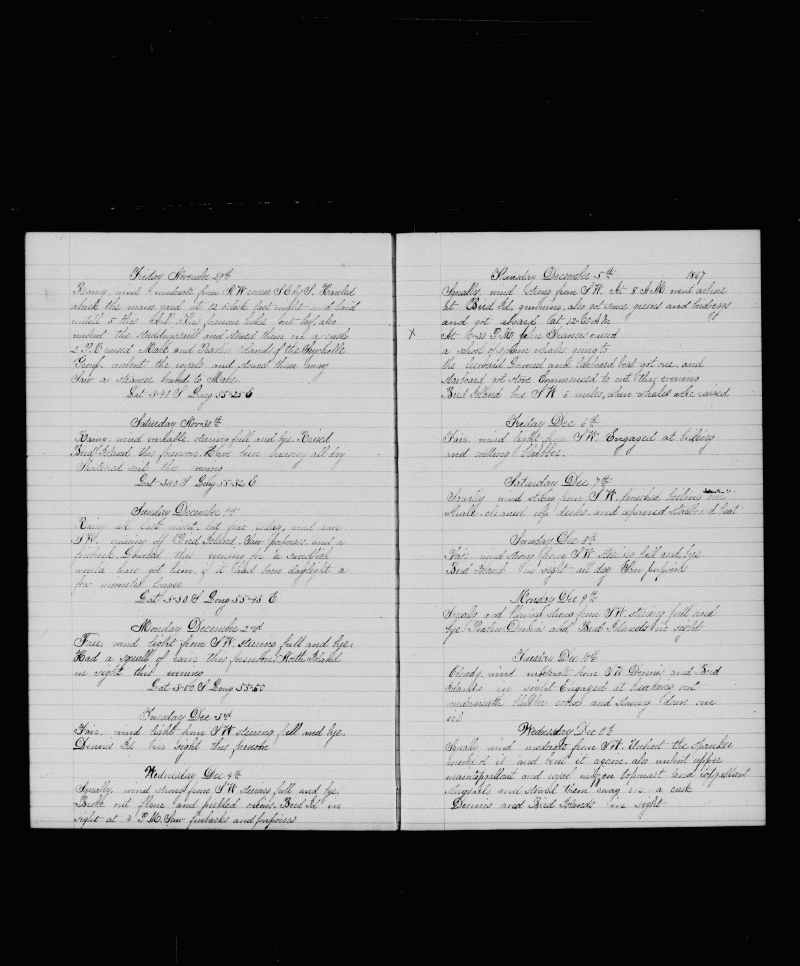 Friday November 29th
Rainy, wind moderate from N.W. S.E by S. Hauled
aback the main yard at 12 o'clock last night and laid
untill 5 this A.M. This forenoon broke out beef, also
unbent the studdingsails and stowed them in a cask
2 P.M. raised Mahe and Islands of the Seychelle
Group. unbent the royals and stowed them away
Saw a steamer bound to Mahe.
Lat 5-41 S Long 55-25 E
Saturday Nov 30th
Rainy, wind variable, steering full and bye. Raised
Bird Island this forenoon. Have been all day
Shortened sail this evening
Lat 3-40 S Long 55-32 E
Sunday December 1st
Rainy all last night, but fair today, wind
S.W. cruising off Bird Island. Saw porpoises and a
finback. Lowered this evening for a
would have got them if it had been daylight a
few minutes longer
Lat 3-30 S Long 55-43 E
Monday December 2nd
Fair, wind light from S.W. steering full and bye.
Had a squall of rain this forenoon. North Island
in sight this evening
Lat 3-50 S Long 55-50
Tuesday Dec 3d
Fair, wind light from S.W. steering full and bye.
Dennis Id in sight this forenoon
Wednesday Dec 4th
Squally, wind strong from S.W. steering full and bye.
Broke out flour and pickled onions. Bird Id in
sight at 4 P.M. Saw finbacks and porpoises
Thursday December 5th 1867
Squally, wind strong from S.W. At 8 A.M. went ashore
at Bird Id, gunning, also got some greens and
and got aboard at 12-30 A.M.
X At P.M. raised
a school of sperm whales going to
the leeward. Lowered and larboard boat got one, and
starboard got stove. Commenced to cut this evening
Bird Island bore S.W. 5 miles, when whales were raised
Friday Dec 6th
Fair, wind light from S.W. Engaged at boiling
and cutting blubber.
Saturday Dec 7th
Squally wind strong from S.W. finished boiling our
whale, cleaned up decks, and repaired starboard boat
Sunday Dec 8th
Fair, wind strong from S.W. steering full and bye
Bird Island in sight all day. Saw porpoises
Monday Dec 9th
Squally and blowing strong from S.W. steering full and
bye. Dennis and Bird Islands in sight
Tuesday Dec 10th
Cloudy, wind moderate from S.W. Dennis and Bird
Islands in sight Engaged at breaking out
underneath and stowing down our
oil
Wednesday Dec 11th
Squally wind moderate from S.W. Unbent the spanker
mended it and bent it again, also unbent upper
maintopgallant and topmast and topgallant
staysails and stowed them away in a cask
Dennis and Bird Islands in sight